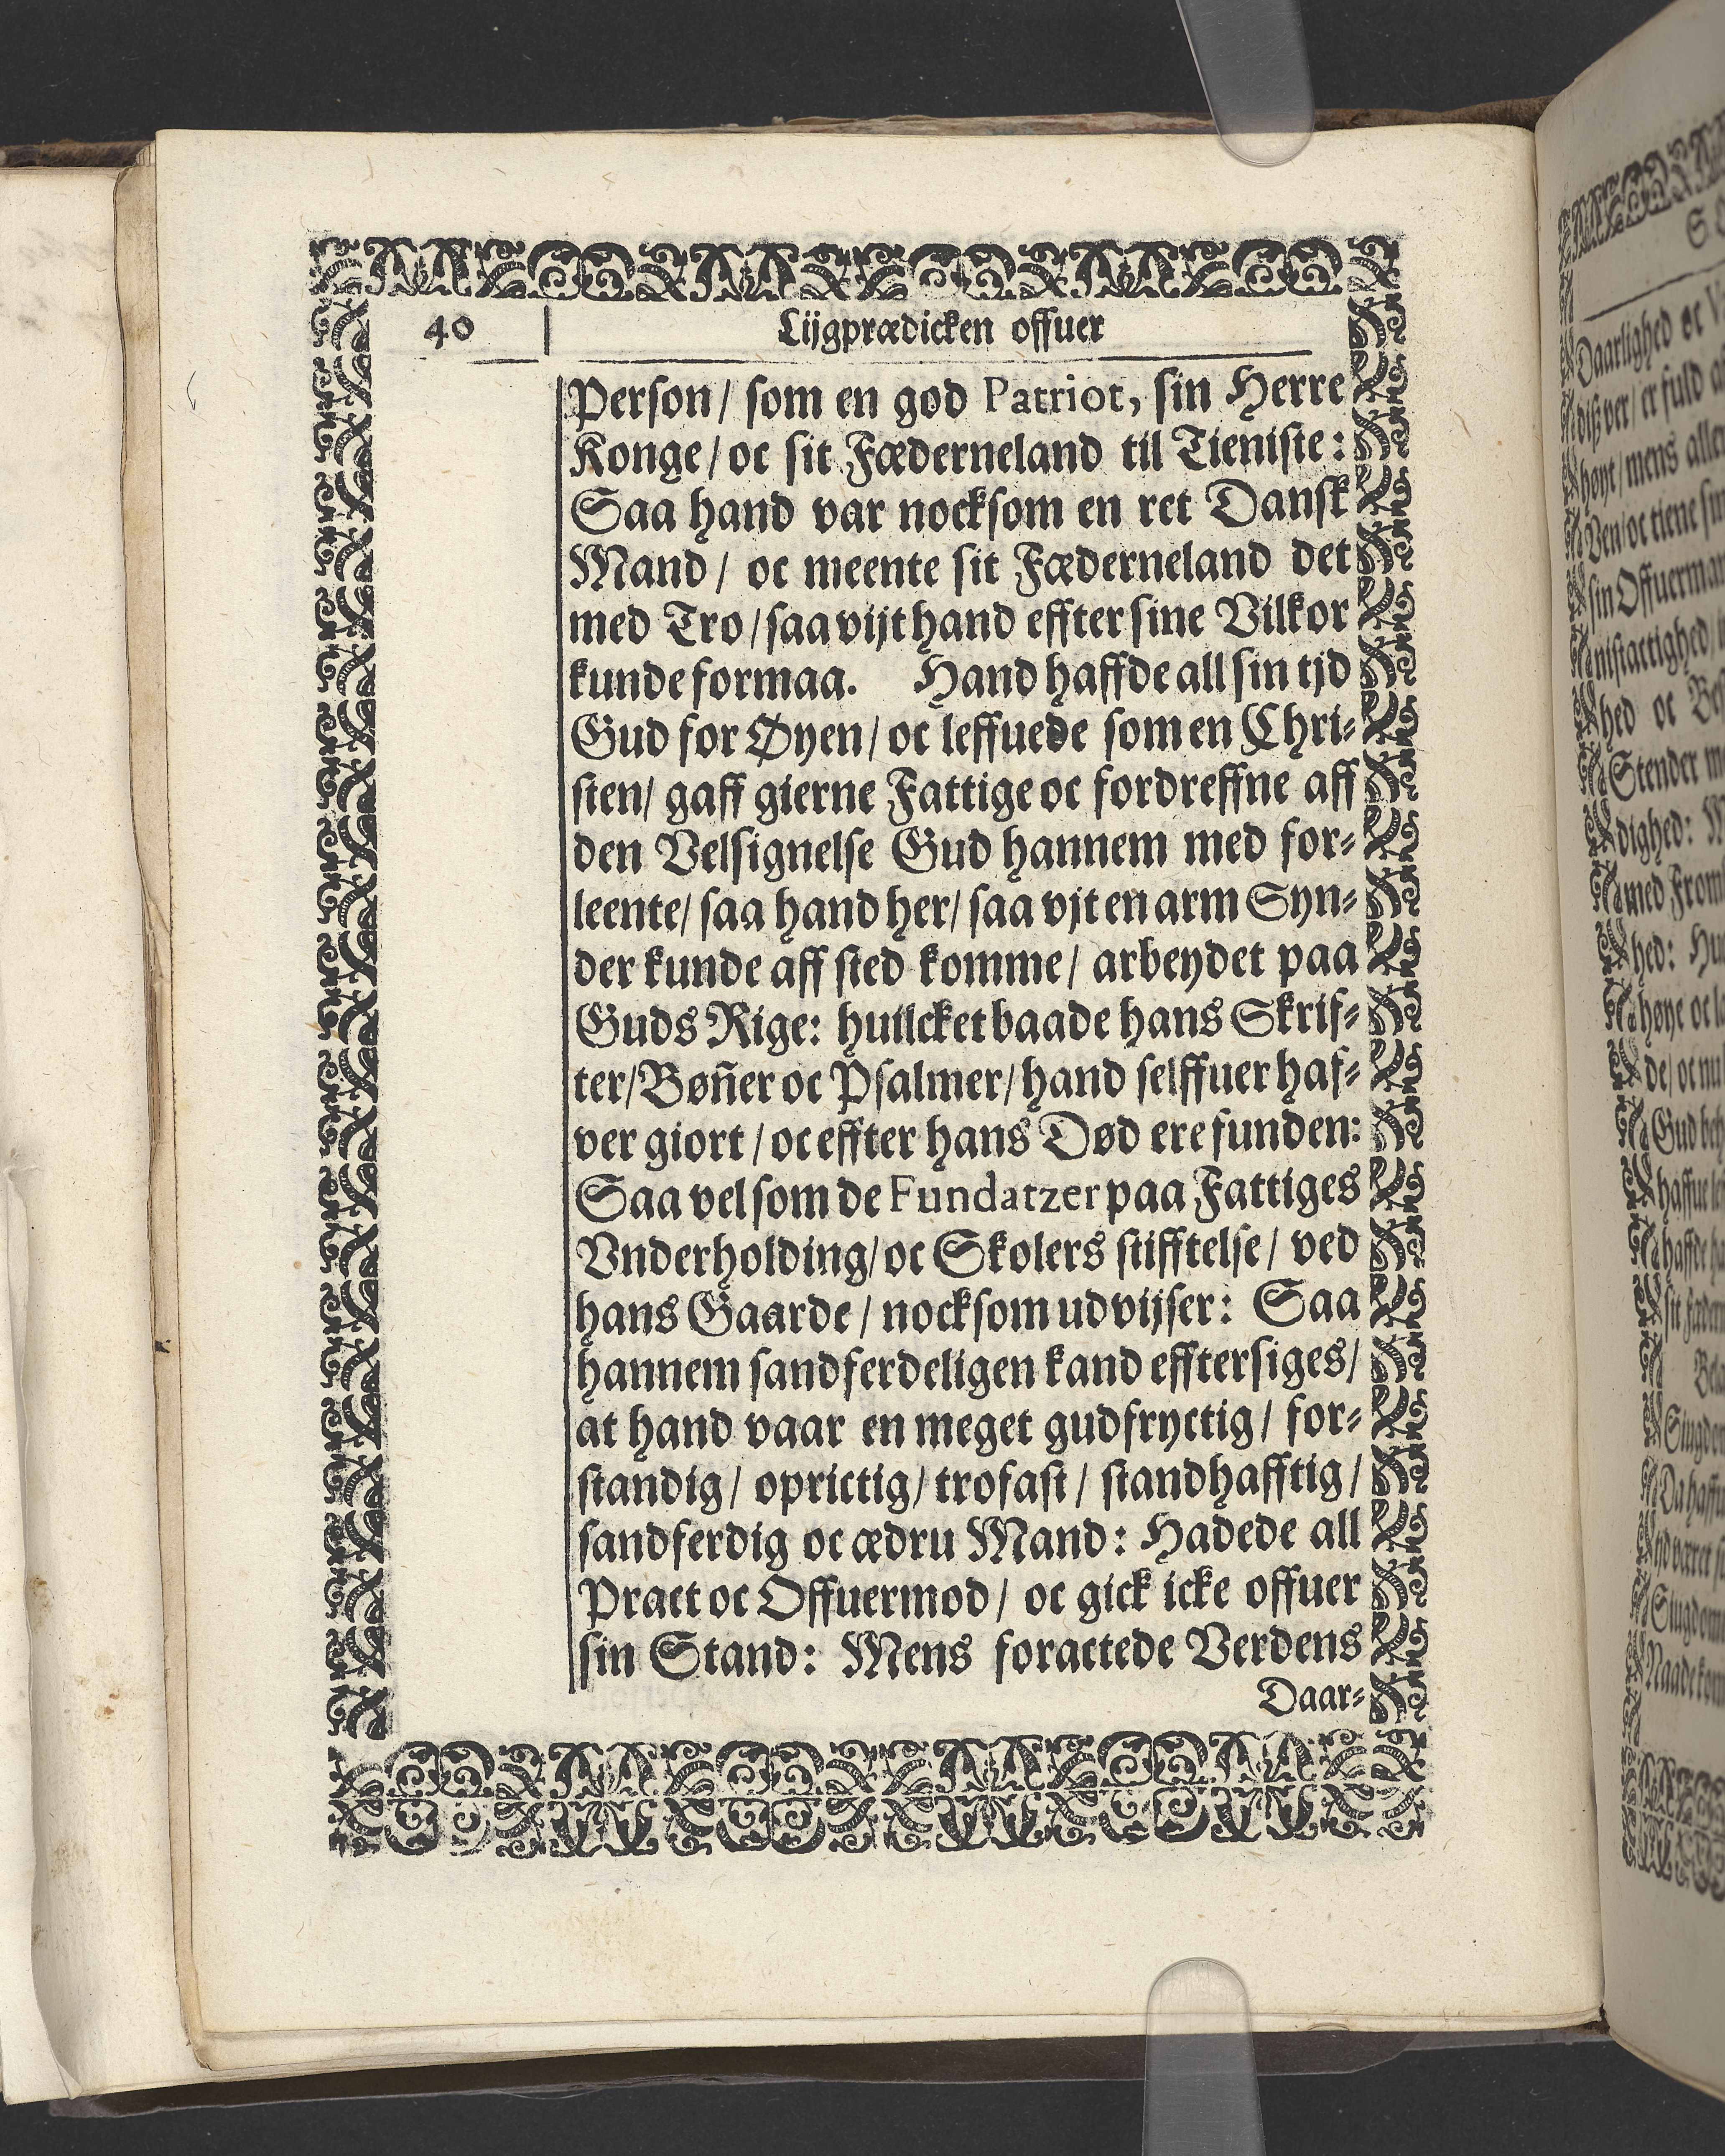 40
Lijgprædicken offuer
Person/ som en god Patriot, sin Herre
Konge/ oc sit Fæderneland til Tieniste:
Saa hand var nocksom en ret Dansk
Mand/ oc meente sit Fæderneland det
med Tro/ saa vijt hand effter sine Vilkor
kunde formaa. Hand haffde all sin tjd
Gud for Øyen/ oc leffuede som en Chri-
sten/ gaff gierne Fattige oc fordreffne aff
den Velsignelse Gud hannem med for-
leente/ saa hand her/ saa vjt en arm Syn-
der kunde aff sted komme/ arbeydet paa
Guds Rige: huilcket baade hans Skrif-
ter/ Bøñer oc Psalmer/ hand selffuer haf-
ver giort/ oc effter hans Død ere funden:
Saa vel som de Fundatzer paa Fattiges
Vnderholding/ oc Skolers stifftelse/ ved
hans Gaarde/ nocksom udvijser: Saa
hannem sandferdeligen kand efftersiges/
at hand vaar en meget gudfryctig/ for-
standig/ oprictig/ trofast/ standhafftig/
sandferdig oc ædru Mand: Hadede all
Pract oc Offuermod/ oc gick icke offuer
sin Stand: Mens foractede Verdens
Daar-
Daarlighed oc
høyt/ mens
Ven/ oc tiene
hed oc
Stender
dighed:
hed:
høye oc
de/ oc nu
Gud